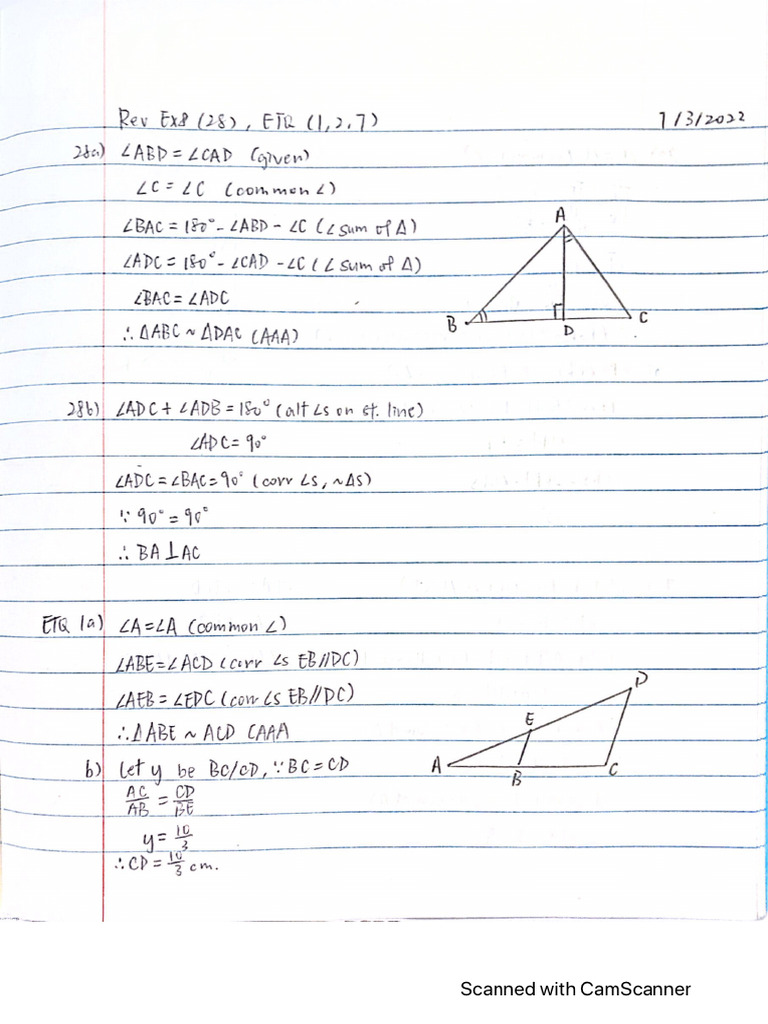 Rev Ex8 (28), ETQ (1,2,7) 7/3/2022
28a) ∠ABD = ∠CAD (given)
∠C = ∠C (common ∠)
∠BAC = 180° - ∠ABD - ∠C (∠ sum of Δ)
∠ADC = 180° - ∠CAD - ∠C (∠ sum of Δ)
∠BAC = ∠ADC
∴ ΔABC ~ ΔDAC (AAA)
A
B
D
C
28b) ∠ADC + ∠ADB = 180° (alt ∠s on st. line)
∠ADC = 90°
∠ADC = ∠BAC = 90° (corr ∠s, ~Δs)
∵ 90° = 90°
∴ BA ⊥ AC
ETQ 1a) ∠A = ∠A (common ∠)
∠ABE = ∠ACD (corr ∠s EB//DC)
∠AEB = ∠EDC (corr ∠s EB//DC)
∴ ΔABE ~ ACD (AAA
D
E
A
B
C
b) Let y be BC/CD, ∵ BC = CD
AC/AB = CD/BE
y = 10/3
∴ CD = 10/3 cm.
Scanned with CamScanner